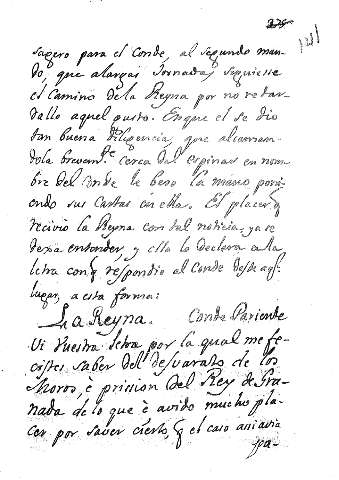 141
sagero para el Conde, al segundo man-
dó, que alargas Jornadas siguiesse
el Camino de la Reyna por no retar-
dalle aquel gusto. En que el se dio
tan buena diligencia, que alcansan-
dola brevem.te cerca del espinar en nom-
bre del Conde le beso la mano poni-
endo sus Cartas en ellas. El placer q
recivio la Reyna con tal noticia ya se
dexa entender, y ella lo declara en la
letra con q respondio al Conde desde aql.
lugar, a esta forma:
La Reyna. Conde Pariente
Vi vuestra letra por la qual me fe-
cistes saber del desvarato de los
Moros, è prision del Rey de Gra-
nada de lo que è avido mucho pla-
cer por saver cierto, q el caso ansi avia
pa-